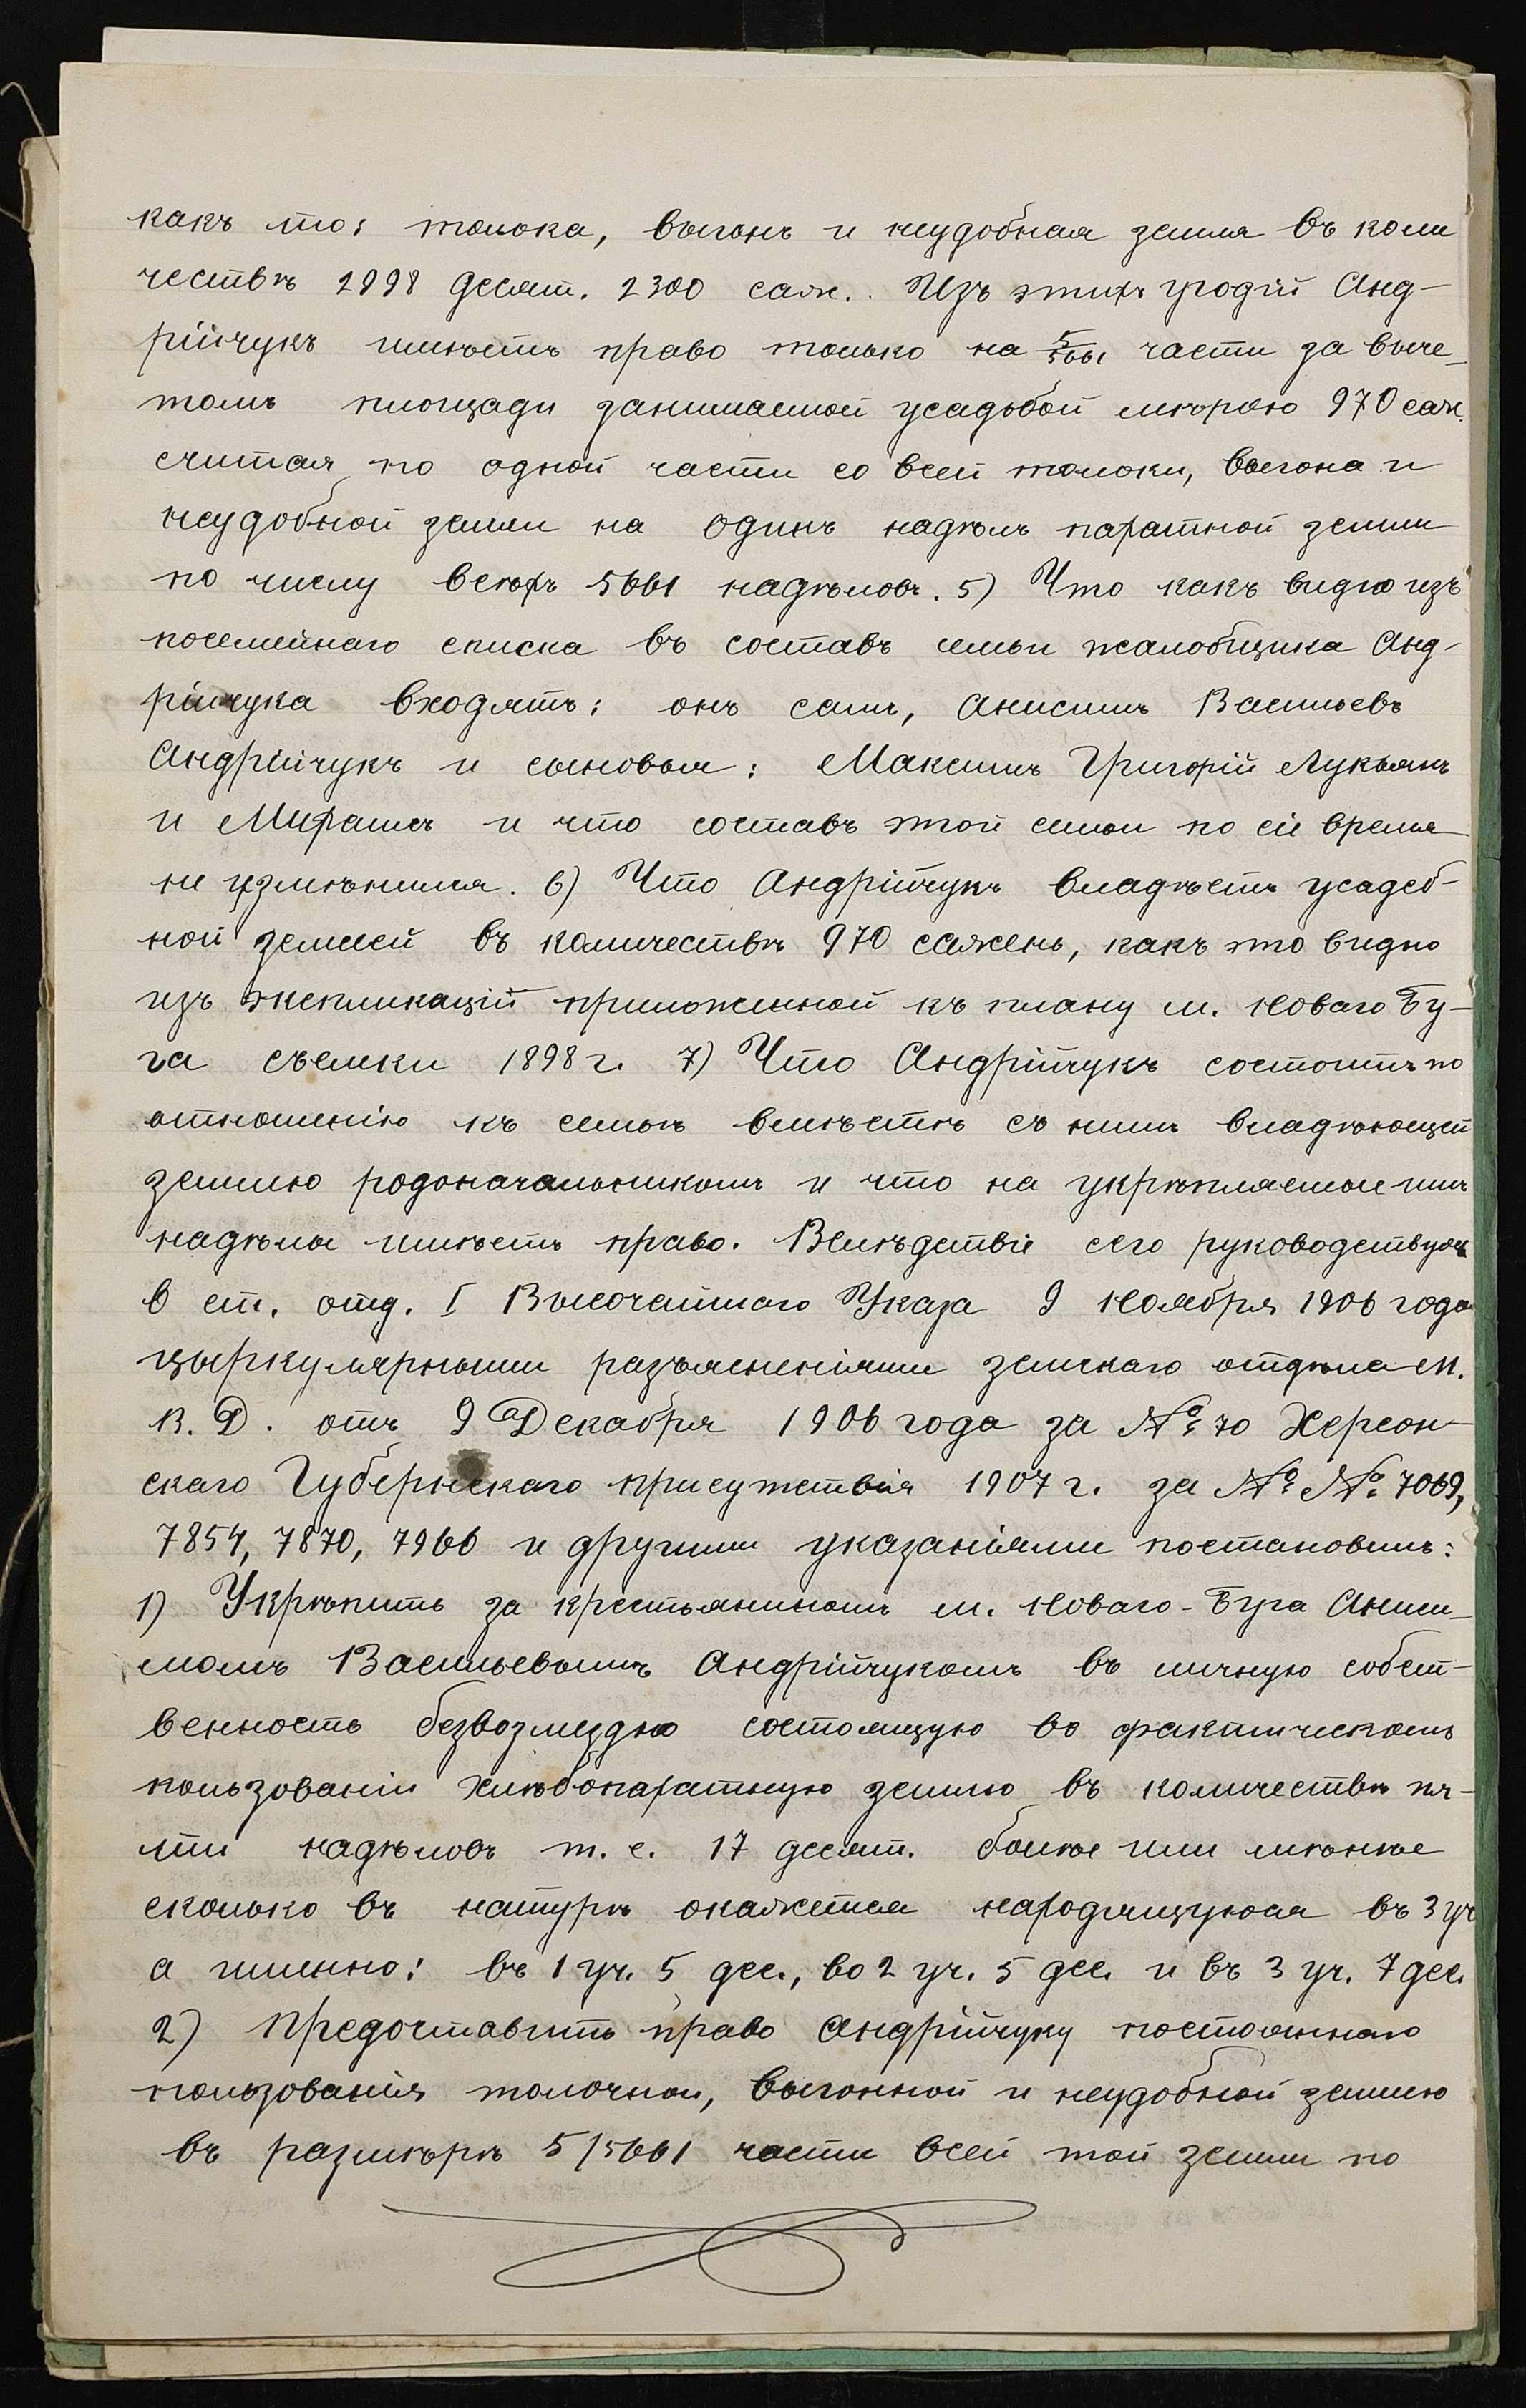 какъ то: толока, выгонъ и неудобная земля въ коли
чествѣ 2998 десят. 2300 саж. Изъ этихъ угодій Анд-
рійчукъ имѣетъ право только на 5/5661 части за выче-
томъ площади занимаемой усадьбой мѣрою 970 саж.
считая по одной части со всей толоки, выгона и
неудобной земли на одинъ надѣлъ пахатной земли
по числу всѣхъ 5661 надѣловъ. 5) Что какъ видно изъ
посемейнаго списка въ составъ семьи жалобщика Анд-
рійчука входятъ: онъ самъ, Анисимъ Васильевъ
Андрійчукъ и сыновья: Максимъ Григорій Лукьянъ
и Мифаилъ и что составъ этой семьи по сіе время
не измѣнился. 6) Что Андрійчукъ владѣетъ усадеб-
ной землей въ количествѣ 970 сажень, какъ это видно
изъ экспликацій приложенной къ плану м. Новаго Бу-
га съемки 1898 г. 7) Что Андрійчукъ состоитъ по
отношенію къ семьѣ вмѣстѣ съ нимъ владѣющей
землею родоначальникомъ и что на укрѣпляемые имъ
надѣлы имѣетъ право. Вслѣдствіе сего руководствуясь
6 ст. отд. I Высочайшаго Указа 9 Ноября 1906 года
цыркулярными разъясненіями земскаго отдѣла М.
В. Д. отъ 9 Декабря 1906 года за № 70 Херсон-
скаго Губернскаго присутствія 1907 г. за № № 7069,
7854, 7870, 7966 и другими указаніями постановилъ:
1) Укрѣпить за крестьяниномъ м. Новаго-Буга Аниси-
момъ Васильевымъ Андрійчукомъ въ личную собст-
венность безвозмездно состоящую во фактическомъ
пользованіи хлѣбопахатную землю въ количествѣ пя-
ти надѣловъ т. е. 17 десят. болѣе или менѣе
сколько въ натурѣ окажется находящуюся въ 3 уч
а именно: въ 1 уч. 5 дес., во 2 уч. 5 дес. и въ 3 уч. 7 дес.
2) Предоставить право Андрійчуку постояннаго
пользованія толочной, выгонной и неудобной землею
въ размѣрѣ 5/5661 части всей той земли по